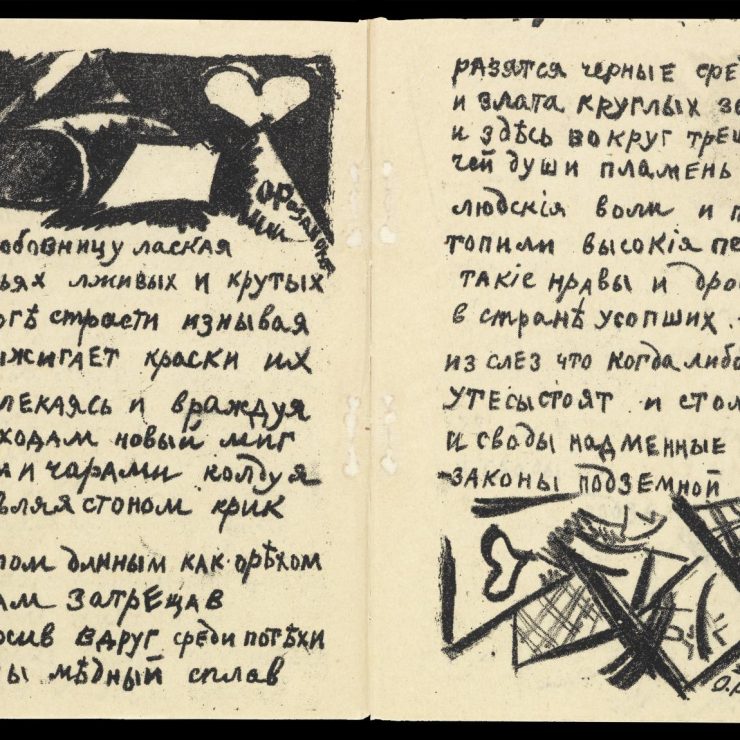 О РОЗАНОВА
юбовницу лаская
ьях лживых и крутых
огѣ страсти изнывая
ыжигает краски их
лекаясь и враждуя
ходам новый миг
и чарами колдуя
вляя стоном крик
пом длинным как орѣхом
ам затрещав
осив вдруг среди потѣхи
ы мѣдный сплав
разятся черные сре
и злата круглых зв
и здѣсь вокруг трещ
чей души пламень
людскія воли и п
топили высокія пе
такіе нравы и дро
в странѣ усопших
из слез что когда либо
утесы стоят и стол
и своды надменные
законы подземной
О.Р